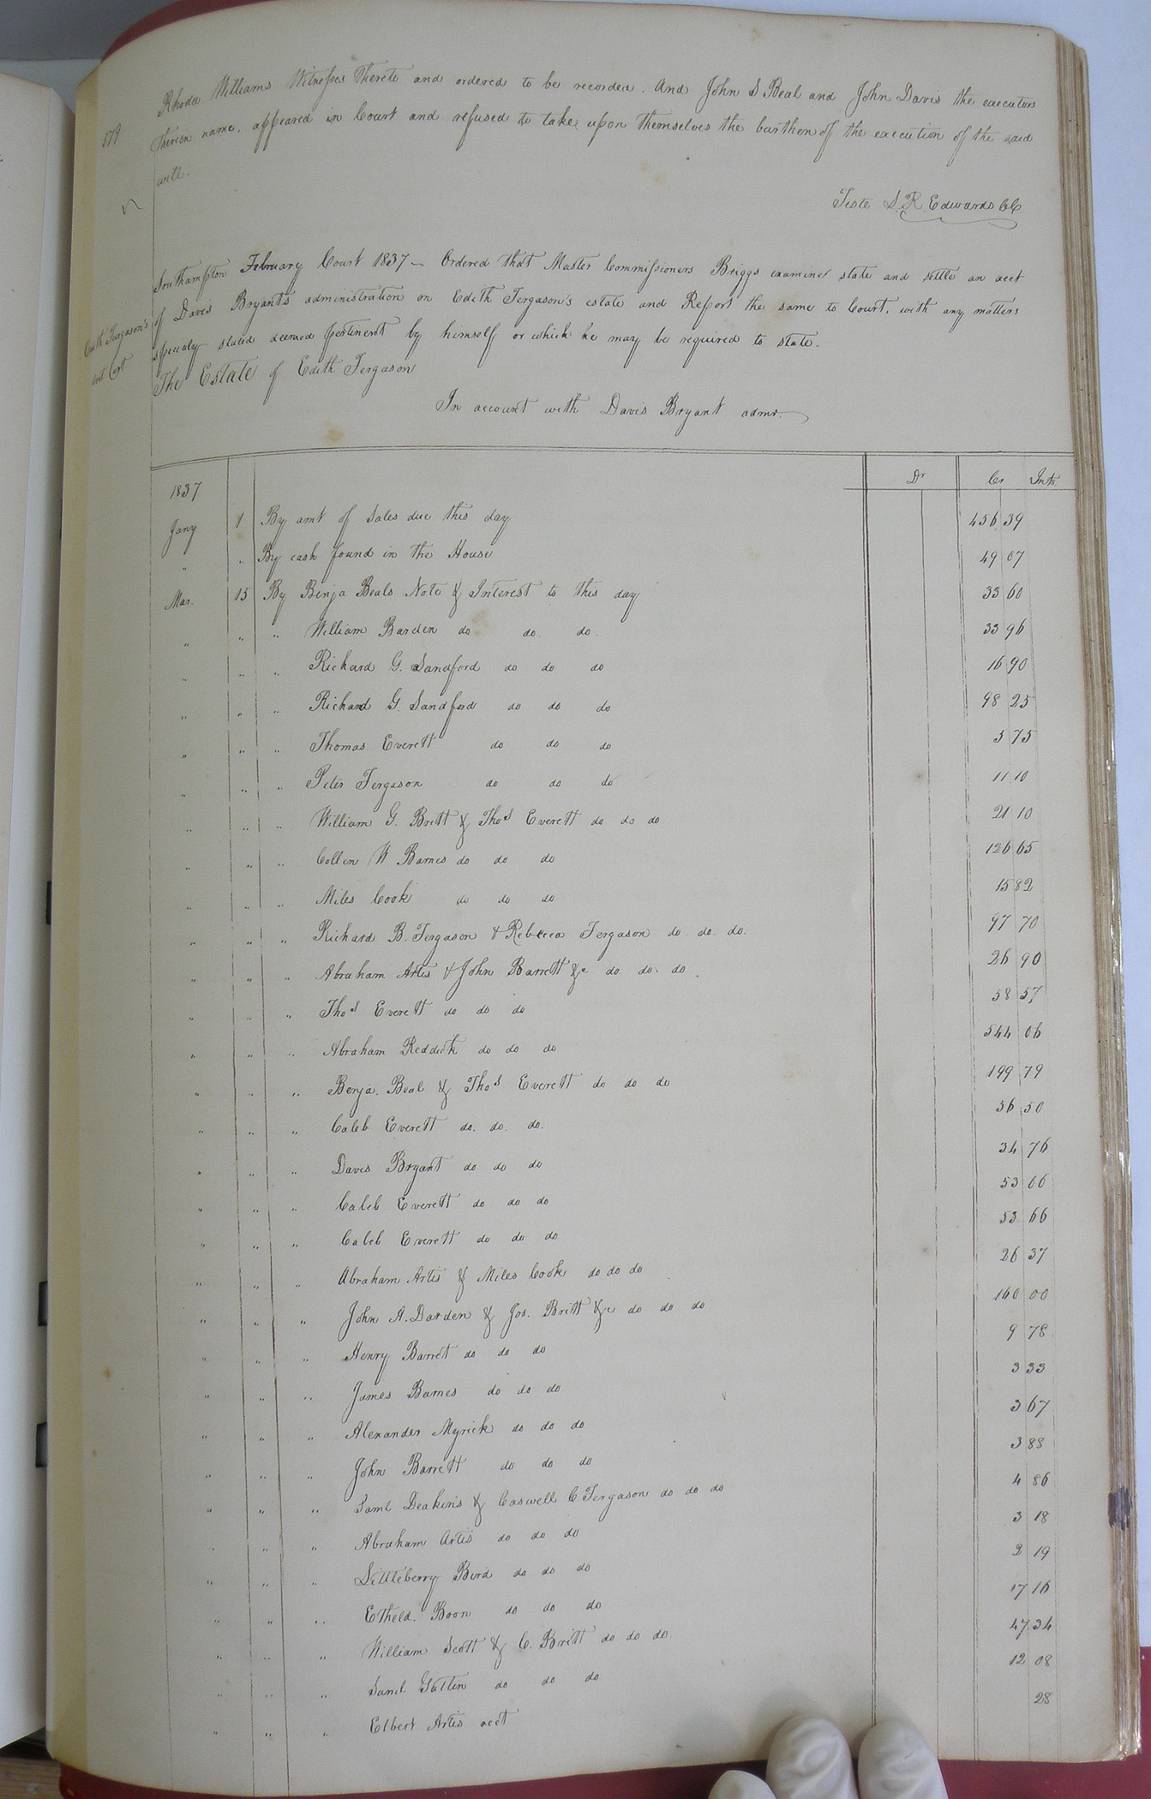 579
Rhoda Williams Witnesses thereto and ordered to be recorded. And John S Beal and John Davis the executors
therein name, appeared in Court and refused to take upon themselves the burthen of the execution of the said
will.
Teste S. R Edwards CC
Southampton February Court 1837 – Ordered that Master Commissioners Briggs examine state and settle an acct
of Davis Bryant's administration on Edith Fergason's estate and Report the same to Court, with any matters
specialy stated deemed pertinent by himself or which he may be required to state.
Edith Fergason's
The Estate of Edith Fergason
In account with Davis Bryant admr.
Dr Cr Ints
1837
Jany 1 By amt of Sales due this day 456 39
" " By cash found in the House 49 07
Mar. 15 By Benja Beals Note & Interest to this day 33 60
" " " William Barden do do. do. 33 96
" " " Richard G. Sandford do do do 16 90
" " " Richard G. Sandford do do do 98 25
" " " Thomas Everett do do do 3 75
" " " Peter Fergason do do do 11 10
" " " William G. Britt & Thos Everett do do do 21 10
" " " Collin W Barnes do do do 126 65
" " " Miles Cook do do do 15 82
" " " Richard B. Fergason & Rebecca Fergason do. do. do. 97 70
" " " Abraham Artis & John Barrett &c do do. do. 26 90
" " " Thos Everett do do do 58 57
" " " Abraham Reddick do do do 544 06
" " " Benja. Beal & Thos Everett do do do 199 79
" " " Caleb Everett do. do. do. 56 50
" " " Davis Bryant do do do 34 76
" " " Caleb Everett do do do 53 66
" " " Caleb Everett do do do 53 66
" " " Abraham Artis & Miles Cook do do do 26 37
" " " John A. Darden & Jos. Britt &c do do do 160 00
" " " Henry Barret do do do 9 78
" " " James Barnes do do do 3 33
" " " Alexander Myrick do do do 3 67
" " " John Barrett do do do 3 88
" " " Saml Deakins & Caswell C Fergason do do do 4 86
" " " Abraham Artis do do do 3 18
" " " Littleberry Bird do do do 2 19
" " " Etheld. Boon do do do 17 16
" " " William Scott & C. Britt do do do 47 34
" " " Saml do do do 12 08
" " " Elbert Artis acct 28